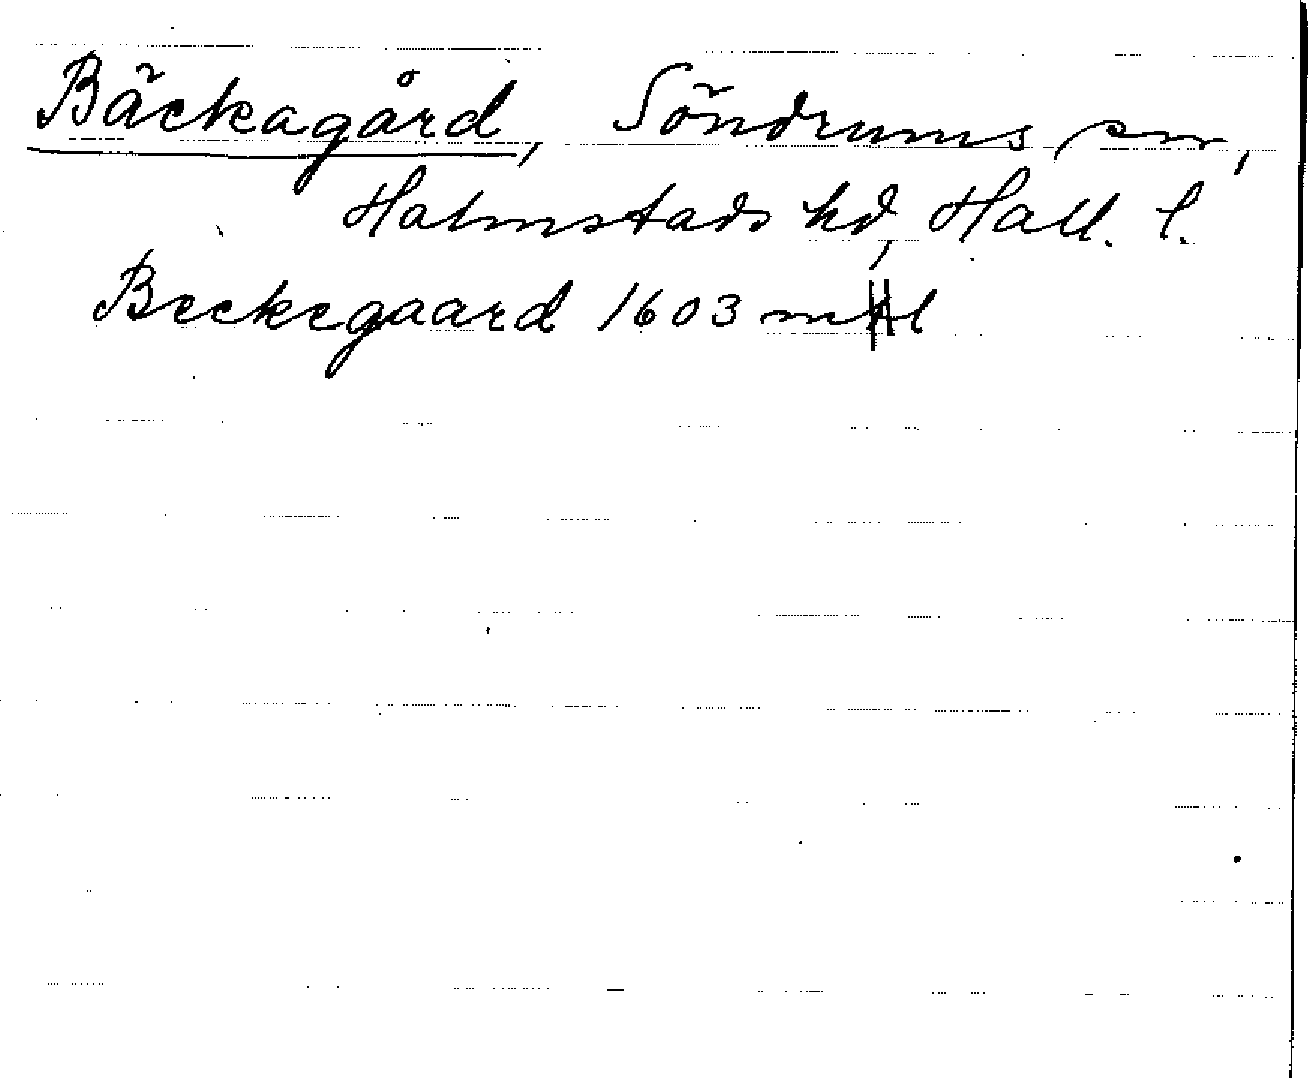 Bäckagård, Söndrums sn,
Halmstads hd, Hall. l.
Beckegaard 1603 mHl